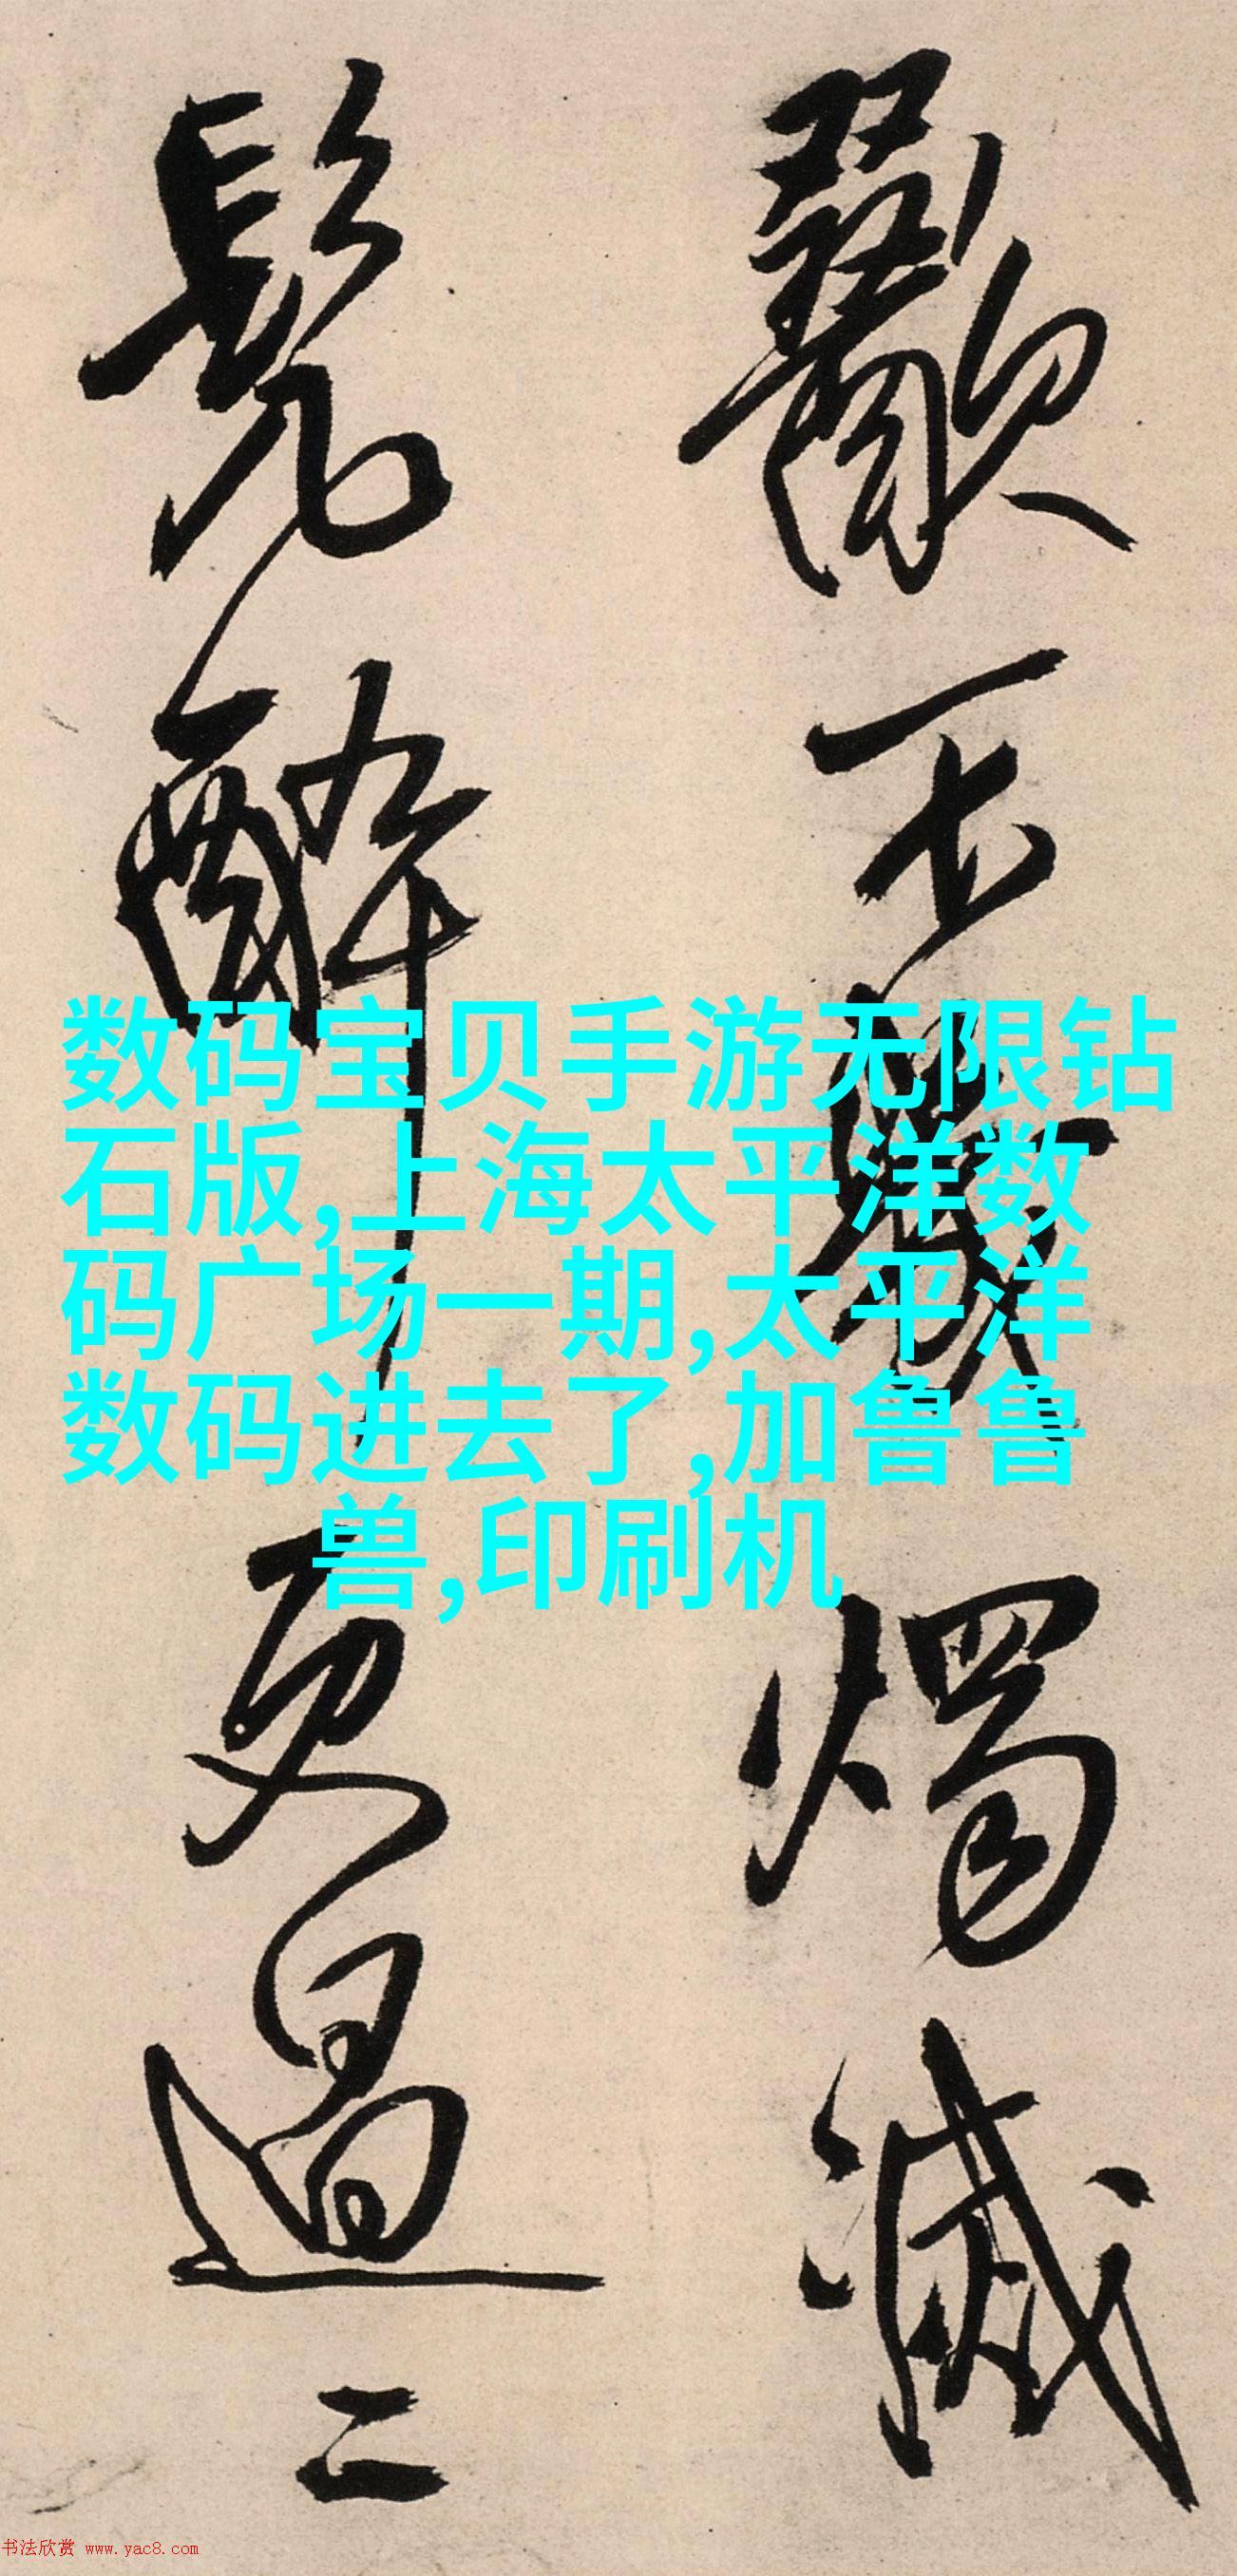 歠不輟燭滅
鬓醉更過二
数码宝贝手游无限钻
石版,上海太平洋数
码广场一期,太平洋
数码进去了,加鲁鲁
兽,印刷机
书法欣赏 www.yac8.com